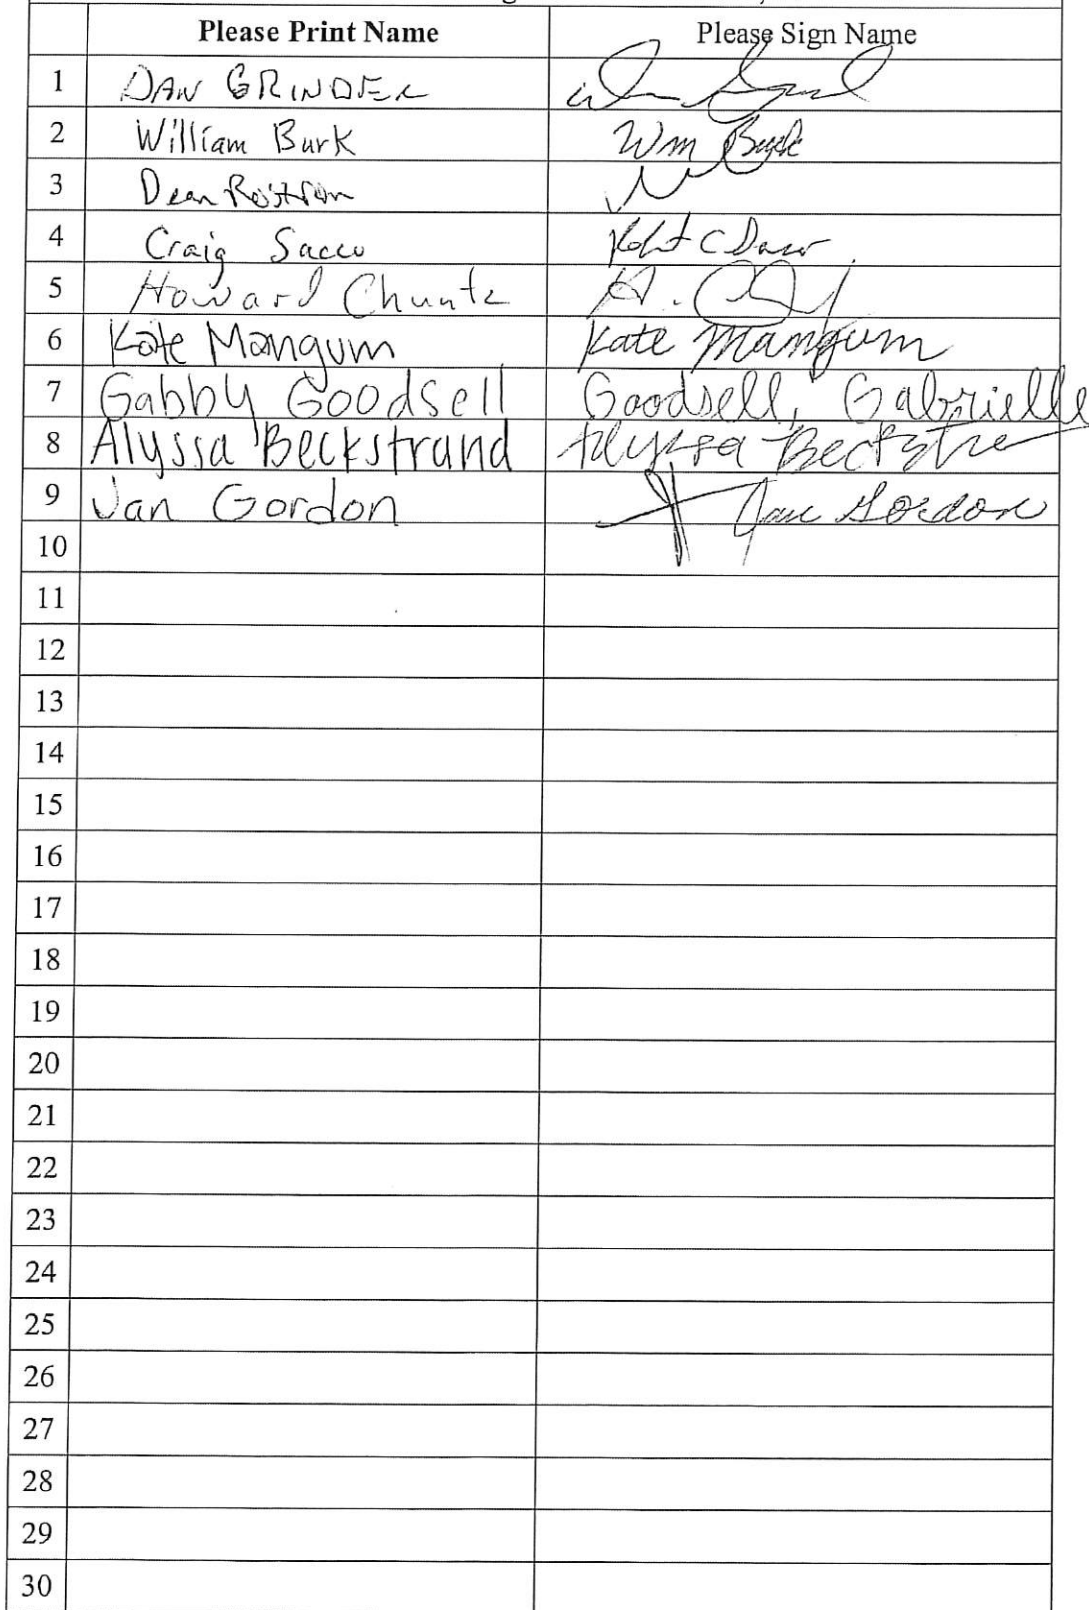 Please Print Name Please Sign Name
1 DAN GRINDER
2 William Burk Wm Burk
3 Dean
4 Craig Sacco
5 Howard Chuntz H.
6 Kate Mangum Kate Mangum
7 Gabby Goodsell Goodsell, Gabrielle
8 Alyssa Beckstrand Alyssa
9 Jan Gordon Jan Gordon
10
11
12
13
14
15
16
17
18
19
20
21
22
23
24
25
26
27
28
29
30